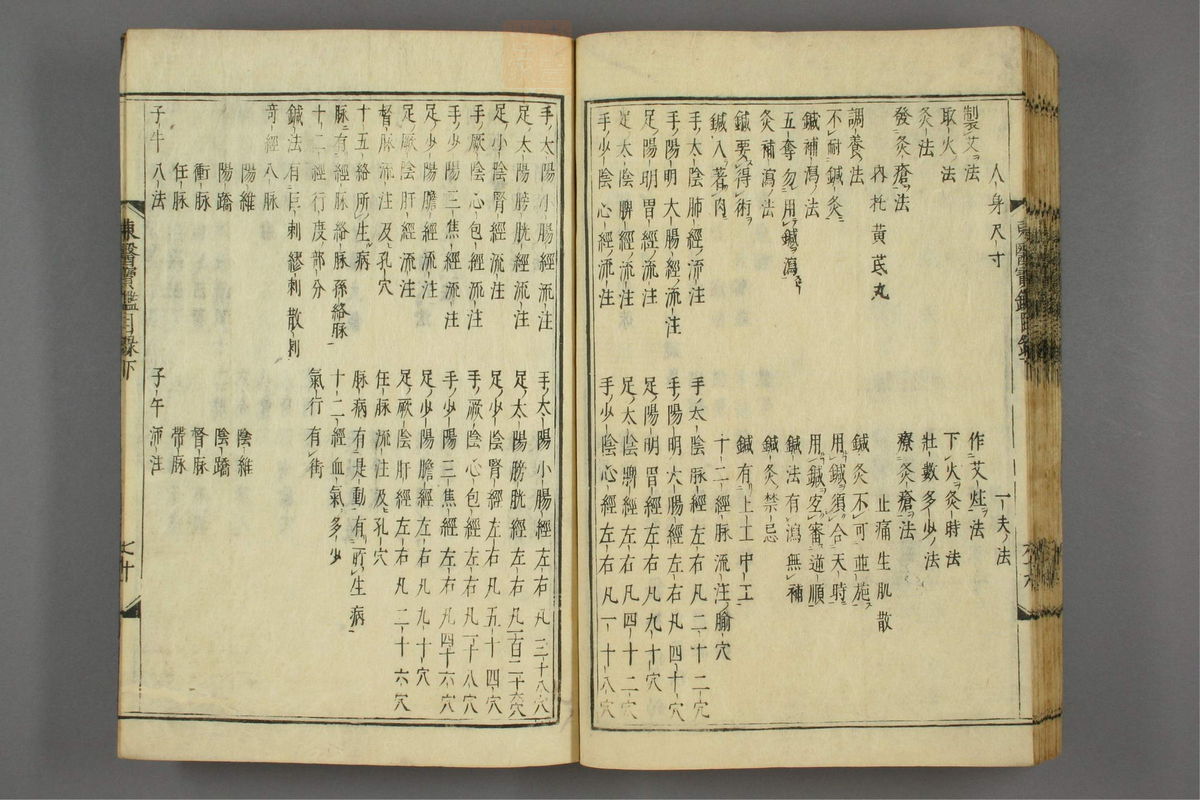 人身尺寸　一夫法
製艾法　作艾炷法
取火法　下火灸時法
灸法　壮數多少法
發灸瘡法　療灸瘡法
内托黄茋丸　止痛生肌散
調養法　鍼灸不可並施
不耐鍼灸　用鍼須合天時
鍼補瀉法　用鍼宜審逆順
五奪勿用鍼瀉　鍼法有瀉無補
灸補瀉法　鍼灸禁忌
鍼要得術　鍼有上工中工
鍼入著肉　十二經脉流注腧穴
手太陰肺經流注　手太陰脉經左右凡二十二穴
手陽明大腸經流注　手陽明大腸經左右凡四十穴
足陽明胃經流注　足陽明胃經左右凡九十穴
足太陰脾經流注　足太陰脾經左右凡四十二穴
手少陰心經流注　手少陰心經左右凡一十八穴
手太陽小腸經流注　手太陽小腸經左右凡三十八穴
足太陽膀胱經流注　足太陽膀胱經左右凡一百二十六穴
足小陰腎經流注　足少陰腎經左右凡五十四穴
手厥陰心包經流注　手厥陰心包經左右凡一十八穴
手少陽三焦經流注　手少陽三焦經左右凡四十六穴
足少陽膽經流注　足少陽膽經左右凡九十穴
足厥陰肝經流注　足厥陰肝經左右凡二十六穴
督脉流注及孔穴　任脉流注及孔穴
十五絡所生病　脉病有是動有所生病
脉有經脉絡脉孫絡脉　十二經血氣多少
十二經行度部分　氣行有街
鍼法有巨刺繆刺散刺
奇經八脉
陽維　陰維
陽蹻　陰蹻
衝脉　督脉
任脉　帶脉
子午八法　子午流注
東醫寶鑑目録下　七十